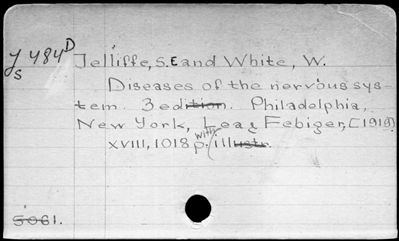 y 484 D
s
Jelliffe, S. E and White, W.
Diseases of the nervous sys-
tem. 3 edition. Philadelphia,
New York, Lea & Febiger, [1919]
with
XVIII, 1018 p. illustr.
5061.